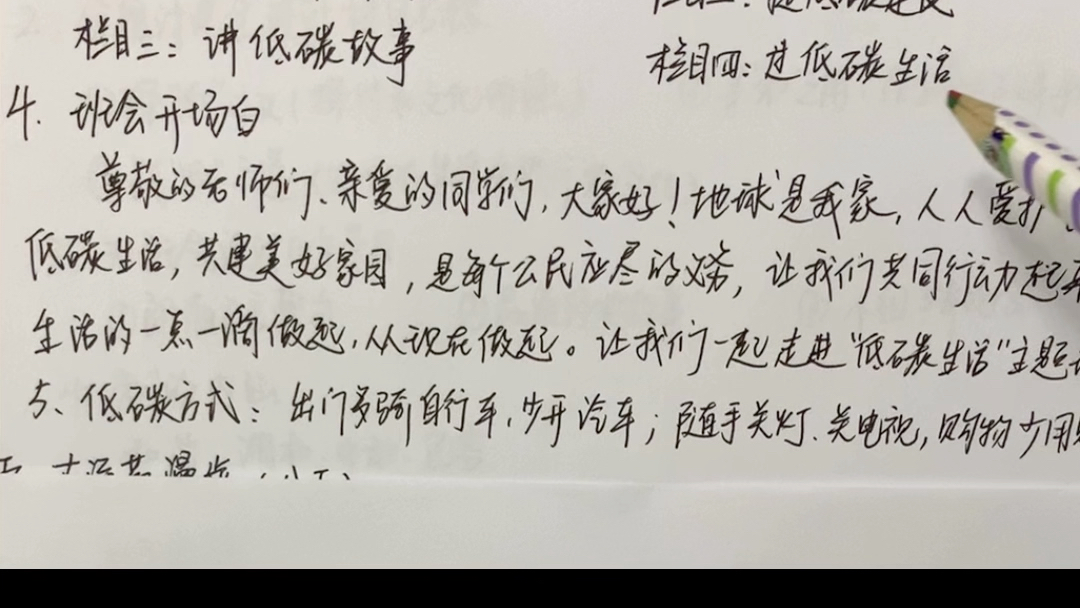 栏目三：讲低碳故事
栏目四：过低碳生活
4. 班会开场白
尊敬的老师们、亲爱的同学们，大家好！地球是我家，人人爱护
低碳生活，共建美好家园，是每个公民应尽的义务，让我们共同行动起来
生活的一点一滴做起，从现在做起。让我们一起走进"低碳生活"主题
5、低碳方式：出门多骑自行车，少开汽车；随手关灯、关电视，购物少用